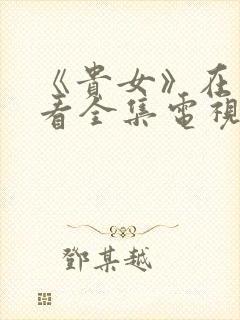 《貴女》在
看全集電視
鄧某越